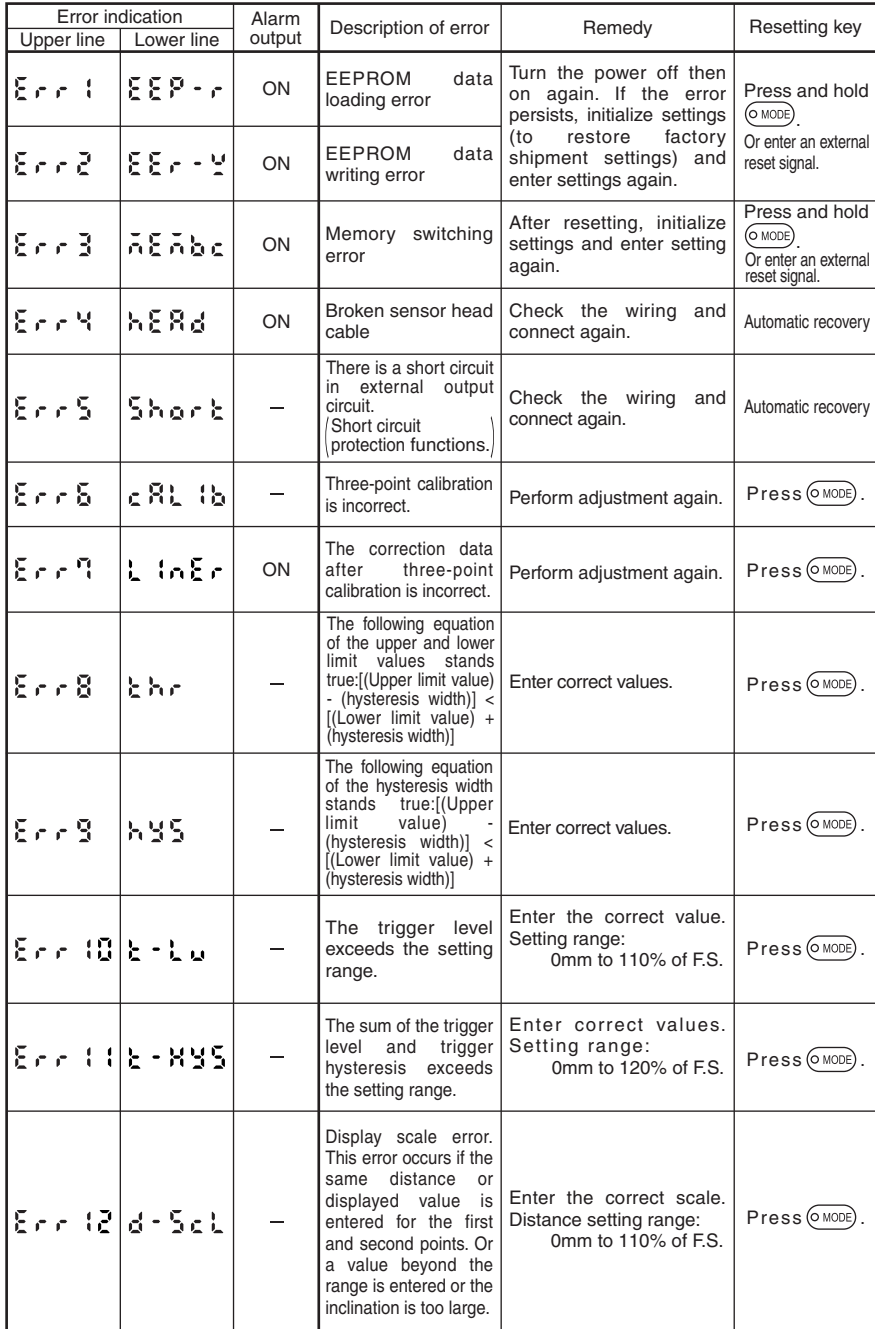 Error indication
Upper line Lower line
Alarm
output
Description of error
Remedy
Resetting key
Err 1
EEP-r
ON
EEPROM data
loading error
Turn the power off then
on again. If the error
persists, initialize settings
(to restore factory
shipment settings) and
enter settings again.
Press and hold
MODE.
Or enter an external
reset signal.
Err2
EEr-y
ON
EEPROM data
writing error
Err3
ON
Memory switching
error
After resetting, initialize
settings and enter setting
again.
Press and hold
MODE.
Or enter an external
reset signal.
Err4
hEAd
ON
Broken sensor head
cable
Check the wiring and
connect again.
Automatic recovery
Err5
Short
–
There is a short circuit
in external output
circuit.
(Short circuit
protection functions.)
Check the wiring and
connect again.
Automatic recovery
Err6
cALIb
–
Three-point calibration
is incorrect.
Perform adjustment again.
Press MODE.
Err7
LInEr
ON
The correction data
after three-point
calibration is incorrect.
Perform adjustment again.
Press MODE.
Err8
thr
–
The following equation
of the upper and lower
limit values stands
true:[(Upper limit value)
- (hysteresis width)] <
[(Lower limit value) +
(hysteresis width)]
Enter correct values.
Press MODE.
Err9
hYS
–
The following equation
of the hysteresis width
stands true:[(Upper
limit value) -
(hysteresis width)] <
[(Lower limit value) +
(hysteresis width)]
Enter correct values.
Press MODE.
Err 10
t-Lu
–
The trigger level
exceeds the setting
range.
Enter the correct value.
Setting range:
0mm to 110% of F.S.
Press MODE.
Err 11
t-HYS
–
The sum of the trigger
level and trigger
hysteresis exceeds
the setting range.
Enter correct values.
Setting range:
0mm to 120% of F.S.
Press MODE.
Err 12
d-ScL
–
Display scale error.
This error occurs if the
same distance or
displayed value is
entered for the first
and second points. Or
a value beyond the
range is entered or the
inclination is too large.
Enter the correct scale.
Distance setting range:
0mm to 110% of F.S.
Press MODE.